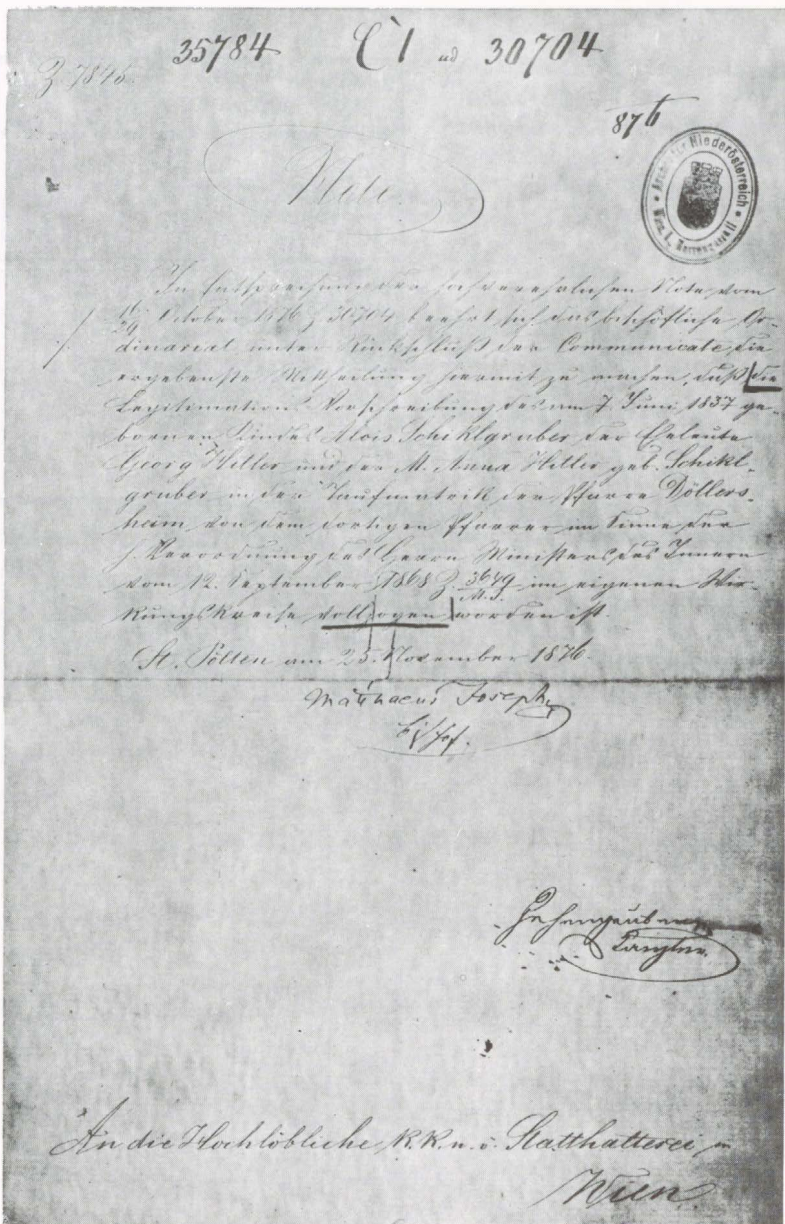 35784 C1 ad 30704
Z 7846
876
Archiv für Niederösterreich • Wien I, Herrengasse 11
Note.
In Entsprechung der hochverehrlichen Note vom
October 1876 Z 30704 beehrt sich das bischöfliche Or-
dinariat unter Rückschluß der Communicate, die
ergebenste Mittheilung hiermit zu machen, daß die
Legitimations Vorschreibung des am 7 Juni 1837 ge-
bornen Kindes Alois Schiklgruber der Eheleute
Georg Hitler und der M. Anna Hitler geb. Schikl-
gruber in der Taufmatrik der Pfarre Döllers-
heim von dem dortigen Pfarrer im Sinne der
h. Verordnung des Herrn Ministers des Innern
vom 12. September 1868 Z. 3649/M.I. im eigenen Wir-
kungskreise vollzogen worden ist.
St. Pölten am 25. November 1876.
Matthaeus Joseph
Bischof.
Kanzler.
An die Hochlöbliche k. k. n. ö. Statthalterei in
Wien